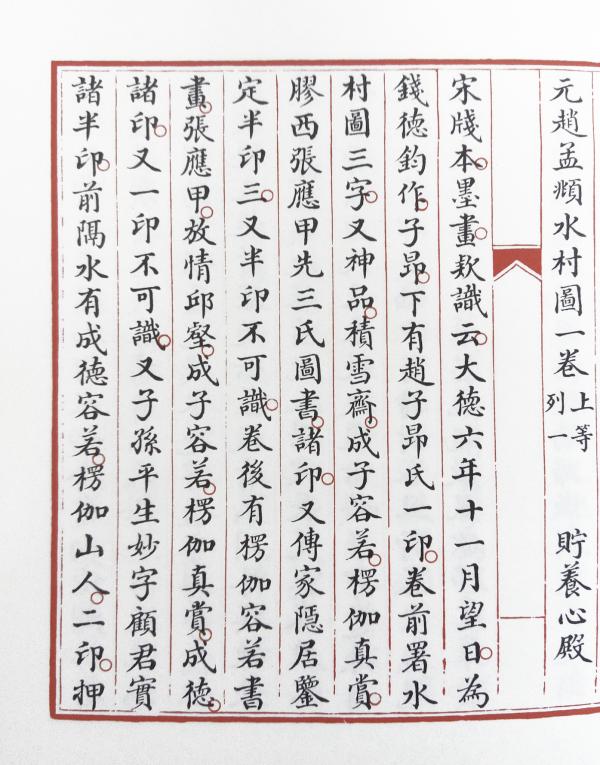 元趙孟頫水村圖一卷 上等列一 貯養心殿
宋牋本墨畫款識云大德六年十一月望日為
錢德鈞作子昂下有趙子昂氏一印卷前署水
村圖三字又神品積雪齋成子容若楞伽真賞
膠西張應甲先三氏圖書諸印又傳家隱居鑒
定半印三又半印不可識卷後有楞伽容若書
畫張應甲放情邱壑成子容若楞伽真賞成德
諸印又一印不可識又子孫平生妙字顧君實
諸半印前隅水有成德容若楞伽山人二印押